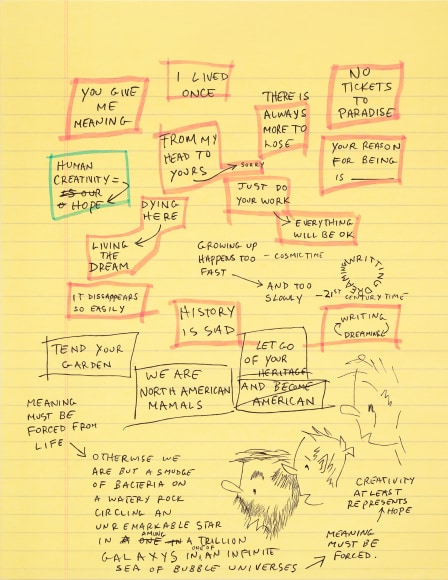 YOU GIVE
ME
MEANING
I LIVED
ONCE
THERE IS
ALWAYS
MORE TO
LOSE
NO
TICKETS
TO
PARADISE
HUMAN
CREATIVITY =
IS OUR
HOPE
FROM MY
HEAD TO
YOURS
SORRY
YOUR REASON
FOR BEING
IS ______
JUST DO
YOUR WORK
EVERYTHING
WILL BE OK
DYING
HERE
LIVING
THE
DREAM
GROWING UP
HAPPENS TOO
FAST
- COSMIC TIME
AND TOO
SLOWLY
- 21ST CENTURY TIME
WRITTING
DREAMING
IT DISSAPPEARS
SO EASILY
HISTORY
IS SAD
WRITING
DREAMING
TEND YOUR
GARDEN
WE ARE
NORTH AMERICAN
MAMALS
LET GO
OF YOUR
HERITAGE
AND BECOME
AMERICAN
MEANING
MUST BE
FORCED FROM
LIFE
OTHERWISE WE
ARE BUT A SMUDGE
OF BACTERIA ON
A WATERY ROCK
CIRCLING AN
UNREMARKABLE STAR
IN A ONE IN AMING A TRILLION
GALAXYS IN ONE OF AN INFINITE
SEA OF BUBBLE UNIVERSES
MEANING
MUST BE
FORCED.
CREATIVITY
AT LEAST
REPRESENTS
HOPE